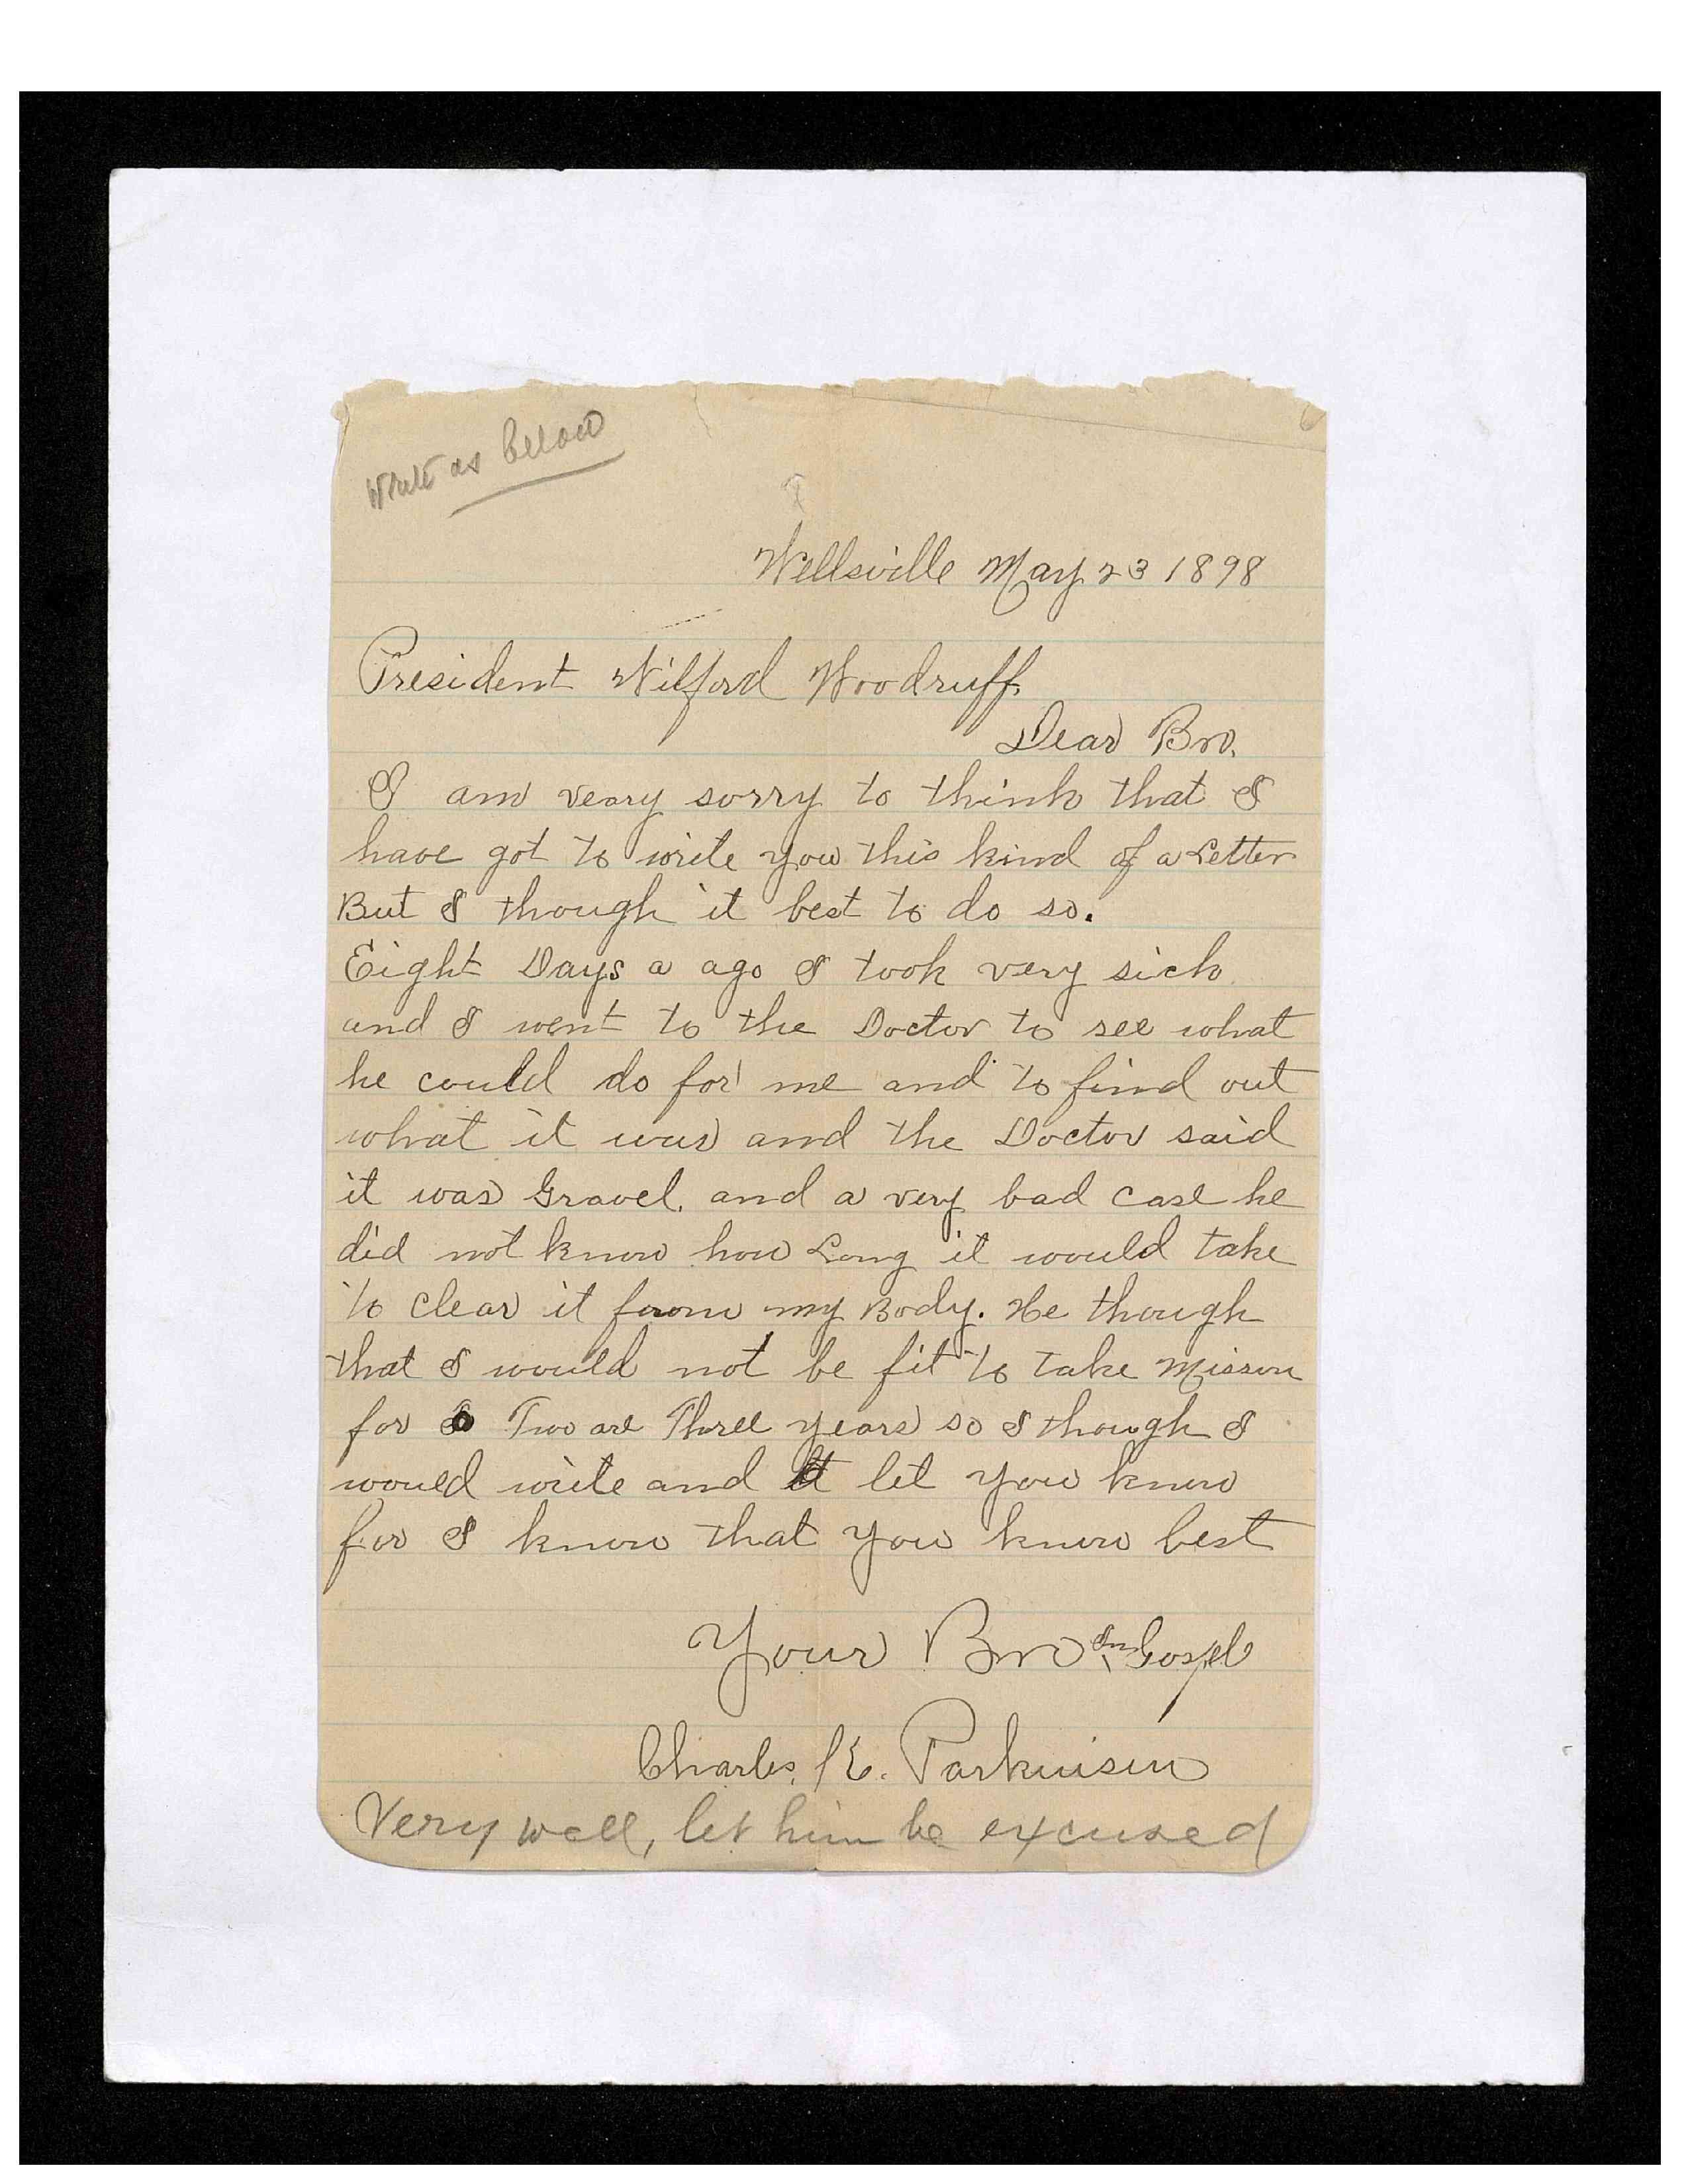 Write as below
Wellsville May 23 1898
President Wilford Woodruff.
Dear Bro.
I am veary sorry to think that I
have got to write you this kind of a Letter
But I though it best to do so.
Eight Days a ago I took very sick
and I went to the Doctor to see what
he could do for me and to find out
what it was and the Doctor said
it was Gravel. and a very bad case he
did not know how Long it would take
to clear it from my Body. He though
that I would not be fit to take Misson
for Two are Three years so I though I
would write and let you know
for I know that you know best
Your Bro In Gospel
Charles. E. Parkinson
Very well, let him be excused